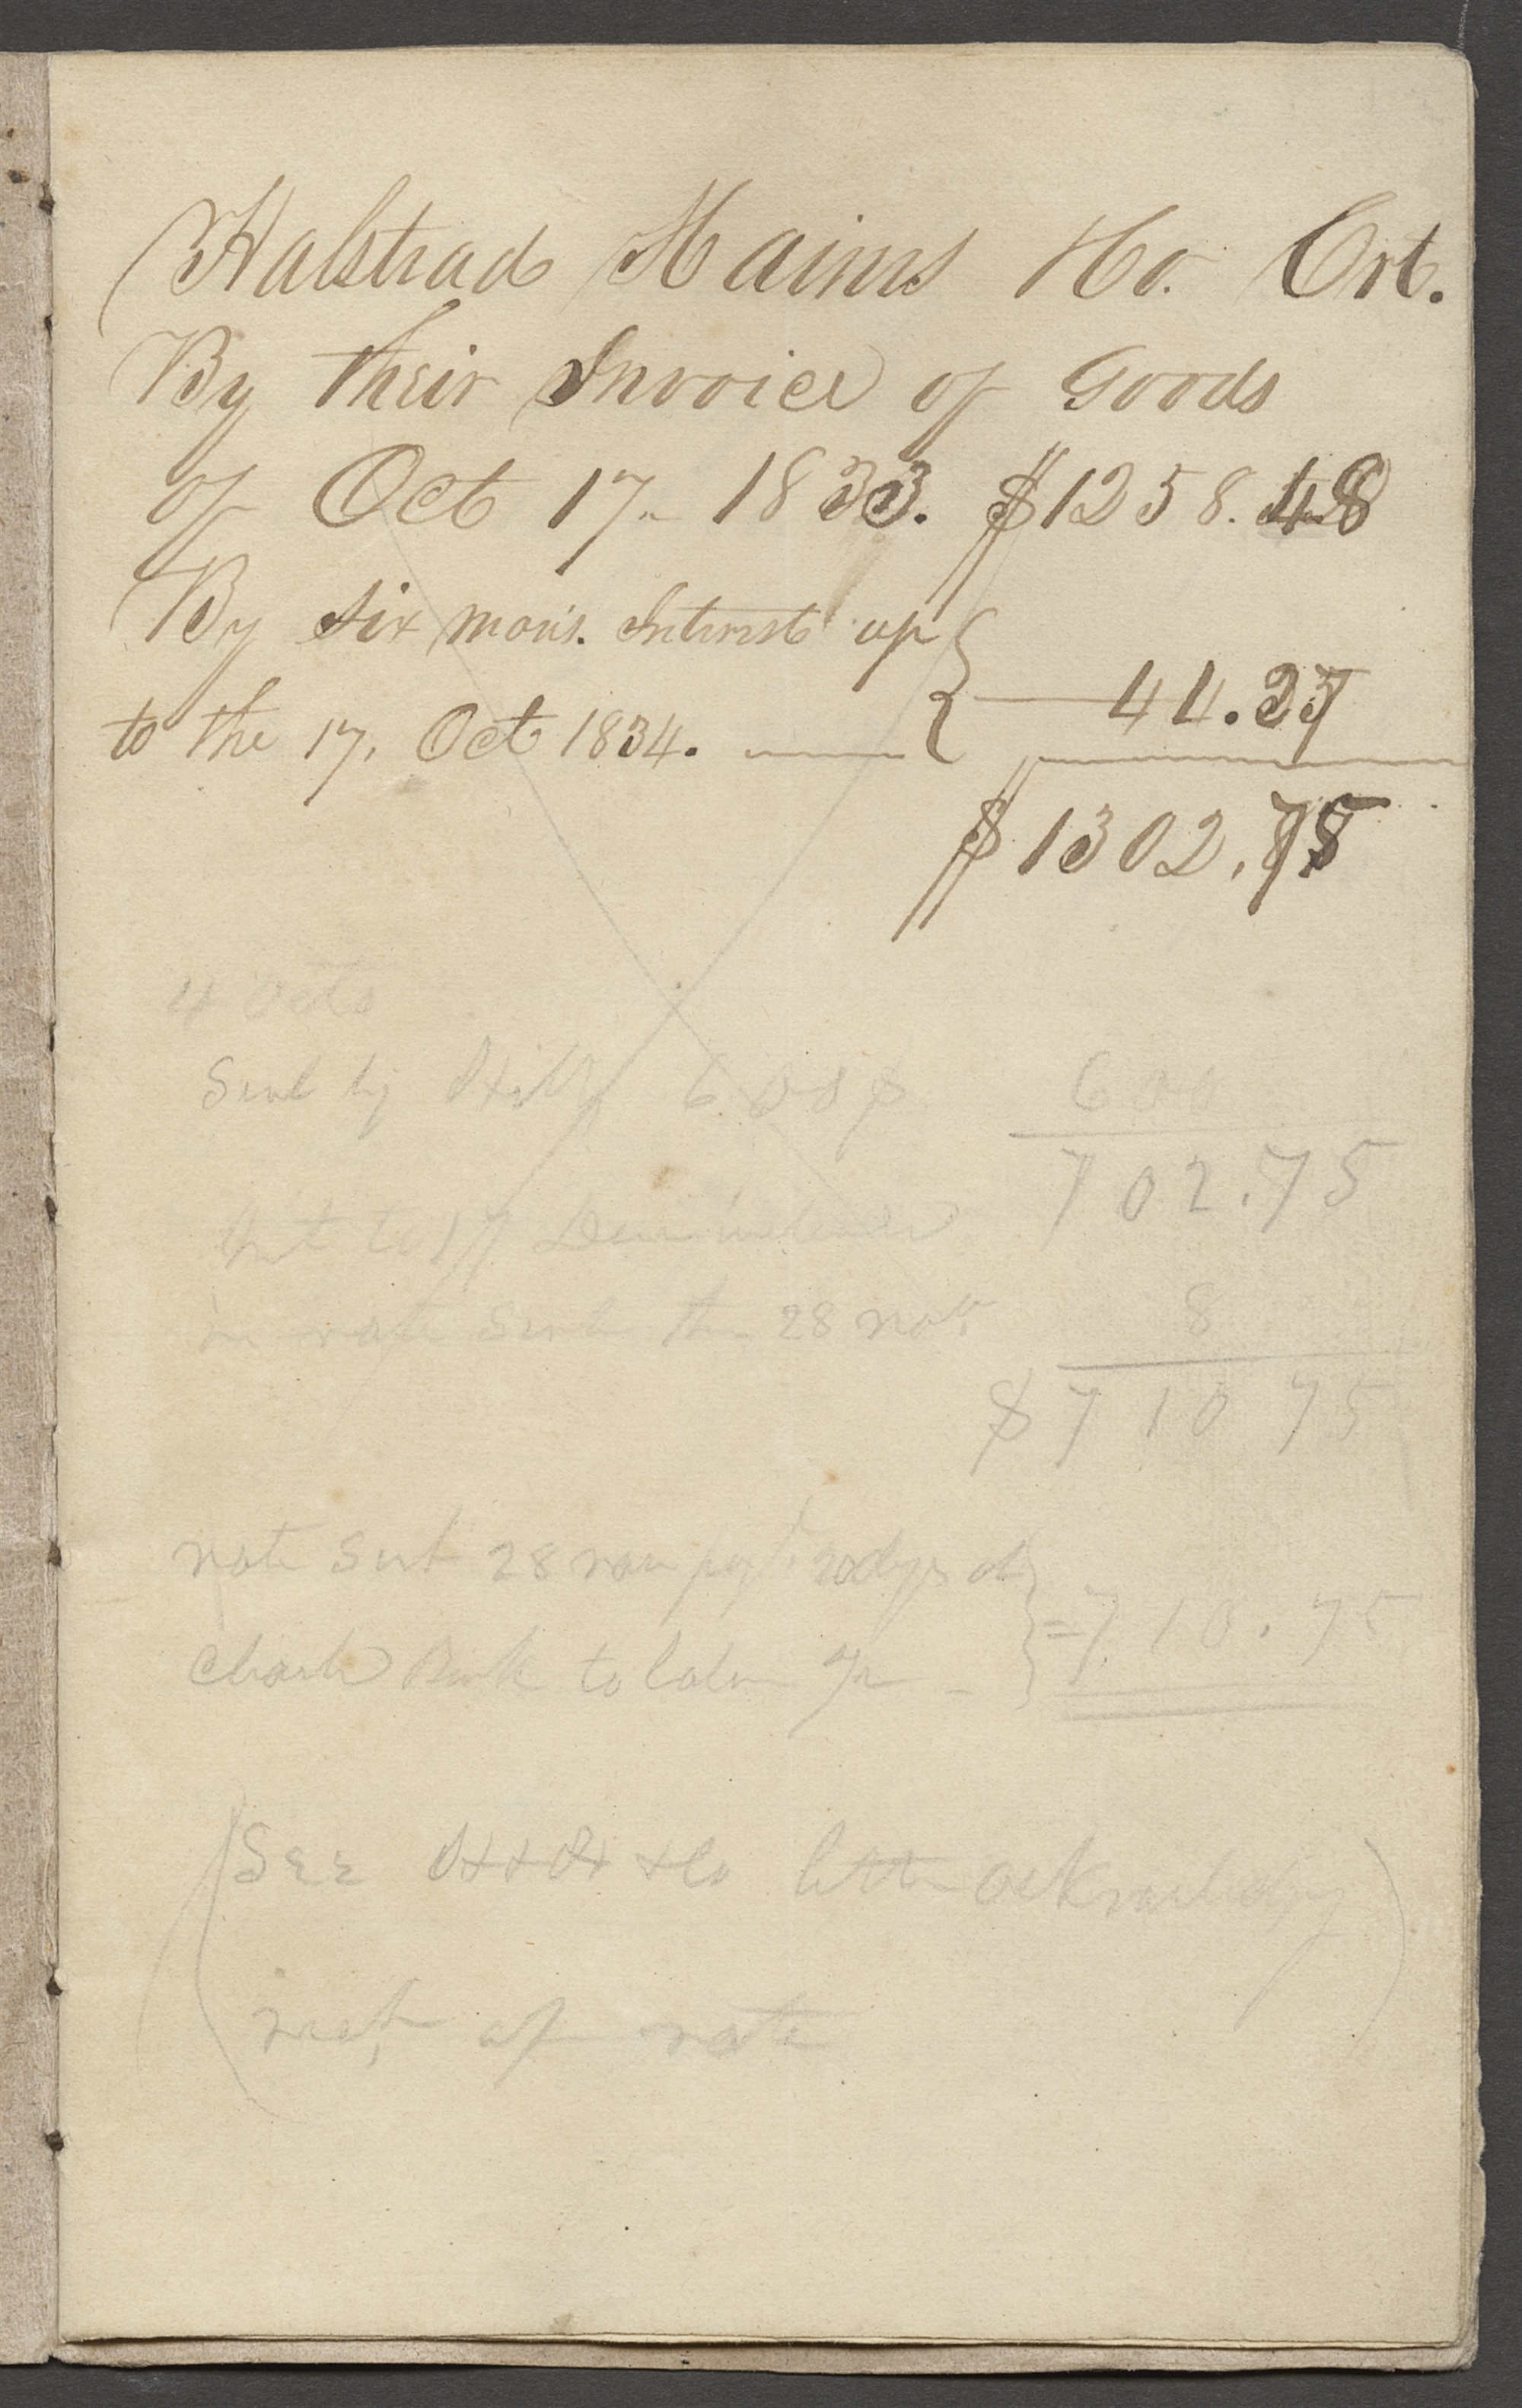 Halstead Haines &Co. Crt.
By their Invoice of Goods
of Oct 17. 1833. $1258.48
By six mon's. Interest up
to the 17. Oct 1834. 44.27
$1302.75
4 Octo
Sent by 600$ 600
702.75
Int to 17
sent the 28 Nov 8
$710 75
note sent 28 Nov at
Bank to = 710.75
(See H & H & Co letter acknowledg
of note)